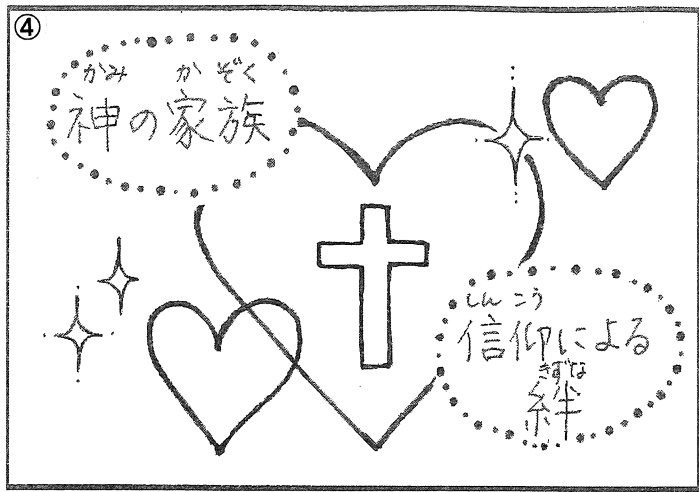 ④
かみ かぞく
神の家族
しんこう
信仰による
きずな
絆